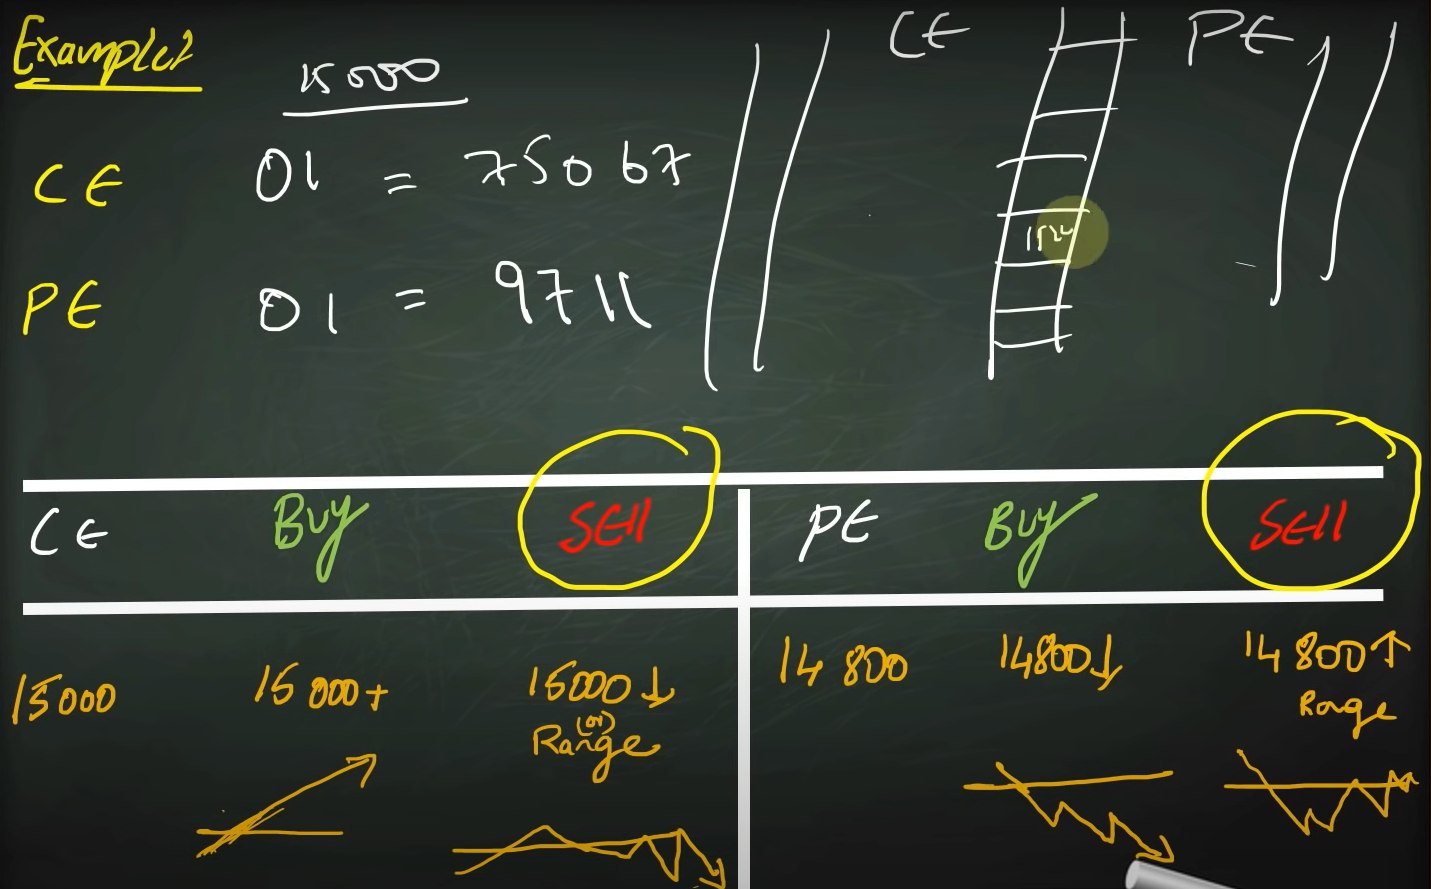 Example:
15000
CE PE
CE OI = 75067
PE OI = 9711
CE Buy SEll PE Buy SEll
15000 15000+ 15000↓ (or) Range 14800 14800↓ 14800↑ Range